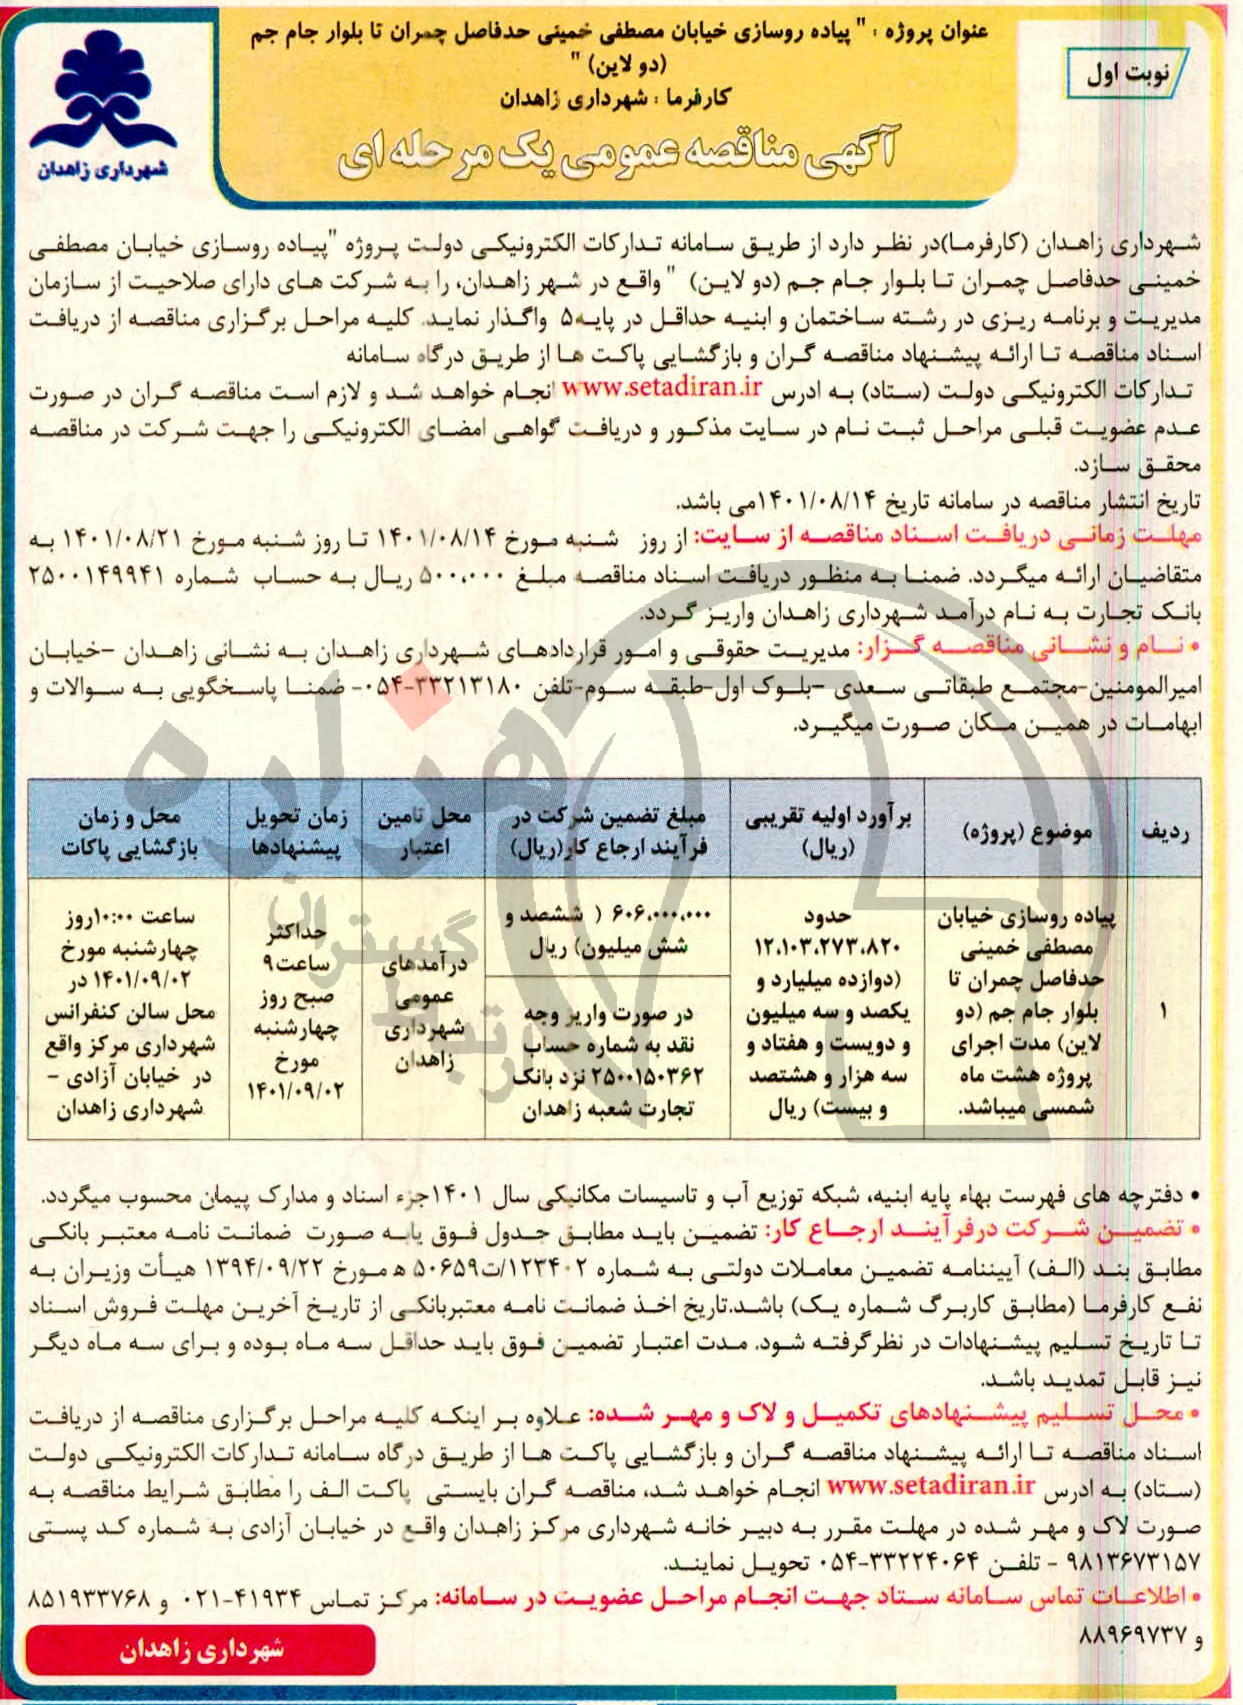 عنوان پروژه : " پیاده روسازی خیابان مصطفی خمینی حدفاصل چمران تا بلوار جام جم
(دو لاین) "
کارفرما : شهرداری زاهدان
نوبت اول
آگهی مناقصه عمومی یک مرحله ای
شهرداری زاهدان
شهرداری زاهدان (کارفرما)در نظر دارد از طریق سامانه تدارکات الکترونیکی دولت پروژه "پیاده روسازی خیابان مصطفی
خمینی حدفاصل چمران تا بلوار جام جم (دو لاین) " واقع در شهر زاهدان، را به شرکت های دارای صلاحیت از سازمان
مدیریت و برنامه ریزی در رشته ساختمان و ابنیه حداقل در پایه۵ واگذار نماید. کلیه مراحل برگزاری مناقصه از دریافت
اسناد مناقصه تا ارائه پیشنهاد مناقصه گران و بازگشایی پاکت ها از طریق درگاه سامانه
تدارکات الکترونیکی دولت (ستاد) به ادرس www.setadiran.ir انجام خواهد شد و لازم است مناقصه گران در صورت
عدم عضویت قبلی مراحل ثبت نام در سایت مذکور و دریافت گواهی امضای الکترونیکی را جهت شرکت در مناقصه
محقق سازد.
تاریخ انتشار مناقصه در سامانه تاریخ ۱۴۰۱/۰۸/۱۴می باشد.
مهلت زمانی دریافت اسناد مناقصه از سایت: از روز شنبه مورخ ۱۴۰۱/۰۸/۱۴ تا روز شنبه مورخ ۱۴۰۱/۰۸/۲۱ به
متقاضیان ارائه میگردد. ضمنا به منظور دریافت اسناد مناقصه مبلغ ۵۰۰،۰۰۰ ریال به حساب شماره ۲۵۰۰۱۴۹۹۴۱
بانک تجارت به نام درآمد شهرداری زاهدان واریز گردد.
• نام و نشانی مناقصه گزار: مدیریت حقوقی و امور قراردادهای شهرداری زاهدان به نشانی زاهدان -خیابان
امیرالمومنین-مجتمع طبقاتی سعدی -بلوک اول-طبقه سوم-تلفن ۳۳۲۱۳۱۸۰-۰۵۴- ضمنا پاسخگویی به سوالات و
ابهامات در همین مکان صورت میگیرد.
ردیف
موضوع (پروژه)
برآورد اولیه تقریبی
(ریال)
مبلغ تضمین شرکت در
فرآیند ارجاع کار(ریال)
محل تامین
اعتبار
زمان تحویل
پیشنهادها
محل و زمان
بازگشایی پاکات
۱
پیاده روسازی خیابان
مصطفی خمینی
حدفاصل چمران تا
بلوار جام جم (دو
لاین) مدت اجرای
پروژه هشت ماه
شمسی میباشد.
حدود
۱۲،۱۰۳،۲۷۳،۸۲۰
(دوازده میلیارد و
یکصد و سه میلیون
و دویست و هفتاد و
سه هزار و هشتصد
و بیست) ریال
۶۰۶،۰۰۰،۰۰۰ ( ششصد و
شش میلیون) ریال
در صورت واریز وجه
نقد به شماره حساب
۲۵۰۰۱۵۰۳۶۲ نزد بانک
تجارت شعبه زاهدان
درآمدهای
عمومی
شهرداری
زاهدان
حداکثر
ساعت۹
صبح روز
چهارشنبه
مورخ
۱۴۰۱/۰۹/۰۲
ساعت ۱۰:۰۰روز
چهارشنبه مورخ
۱۴۰۱/۰۹/۰۲ در
محل سالن کنفرانس
شهرداری مرکز واقع
در خیابان آزادی -
شهرداری زاهدان
هزاره
گستران
• دفترچه های فهرست بهاء پایه ابنیه، شبکه توزیع آب و تاسیسات مکانیکی سال ۱۴۰۱جزء اسناد و مدارک پیمان محسوب میگردد.
• تضمین شرکت درفرآیند ارجاع کار: تضمین باید مطابق جدول فوق یابه صورت ضمانت نامه معتبر بانکی
مطابق بند (الف) آییننامه تضمین معاملات دولتی به شماره ۱۲۳۴۰۲/ت۵۰۶۵۹ ه مورخ ۱۳۹۴/۰۹/۲۲ هیأت وزیران به
نفع کارفرما (مطابق کاربرگ شماره یک) باشد.تاریخ اخذ ضمانت نامه معتبربانکی از تاریخ آخرین مهلت فروش اسناد
تا تاریخ تسلیم پیشنهادات در نظرگرفته شود. مدت اعتبار تضمین فوق باید حداقل سه ماه بوده و برای سه ماه دیگر
نیز قابل تمدید باشد.
• محل تسلیم پیشنهادهای تکمیل و لاک و مهر شده: علاوه بر اینکه کلیه مراحل برگزاری مناقصه از دریافت
اسناد مناقصه تا ارائه پیشنهاد مناقصه گران و بازگشایی پاکت ها از طریق درگاه سامانه تدارکات الکترونیکی دولت
(ستاد) به ادرس www.setadiran.ir انجام خواهد شد، مناقصه گران بایستی پاکت الف را مطابق شرایط مناقصه به
صورت لاک و مهر شده در مهلت مقرر به دبیر خانه شهرداری مرکز زاهدان واقع در خیابان آزادی به شماره کد پستی
۹۸۱۳۶۷۳۱۵۷ - تلفن ۳۳۲۲۴۰۶۴-۰۵۴ تحویل نمایند.
• اطلاعات تماس سامانه ستاد جهت انجام مراحل عضویت در سامانه: مرکز تماس ۴۱۹۳۴-۰۲۱ و ۸۵۱۹۳۳۷۶۸
و ۸۸۹۶۹۷۳۷
شهرداری زاهدان